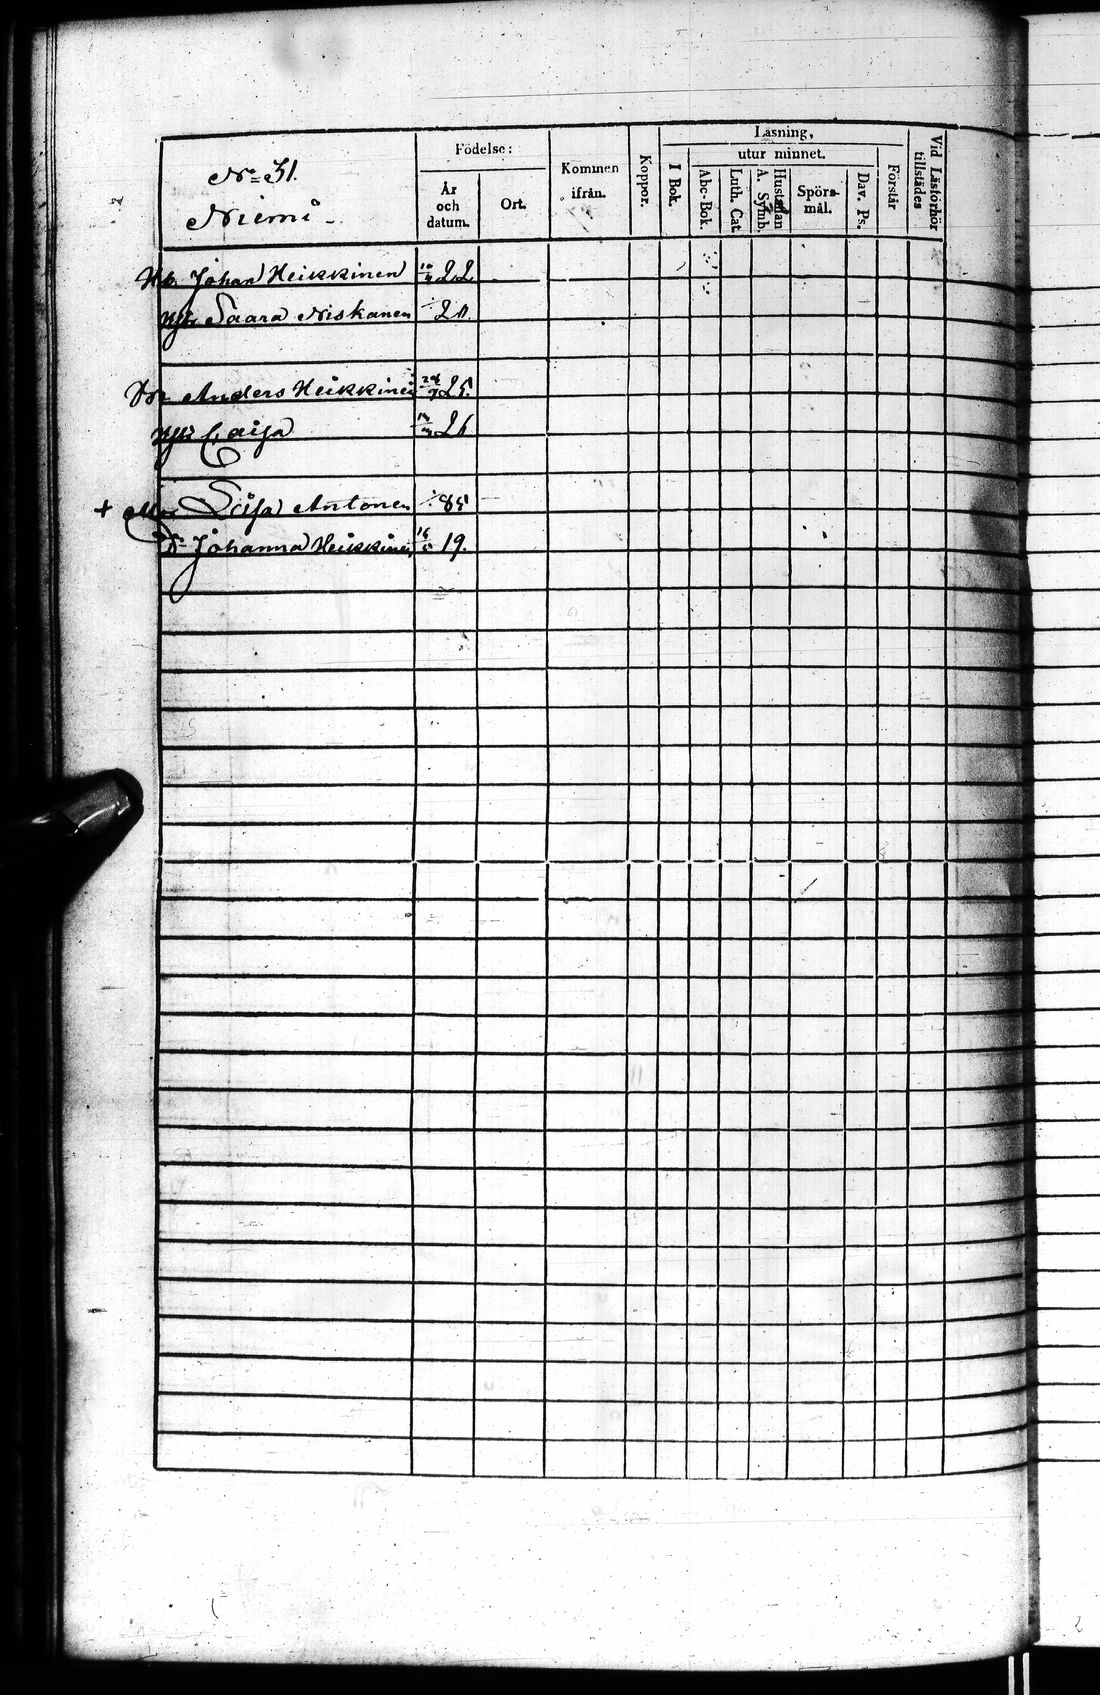 No 31.
Niemi
Födelse:
År och datum.
Ort.
Kommen ifrån.
Koppor.
Läsning,
I Bok.
utur minnet.
Abc-Bok.
Luth. Cat.
Hustaflan A. Symb.
Spörsmål.
Dav. Ps.
Förstår
Vid Läsförhör tillstädes
Johan Heikkinen 22
Saara Niskanen 20.
Anders Heikkinen 25.
Caisa 26
+ Lisa Antonen 85
Dr Johanna Heikkinen 19.